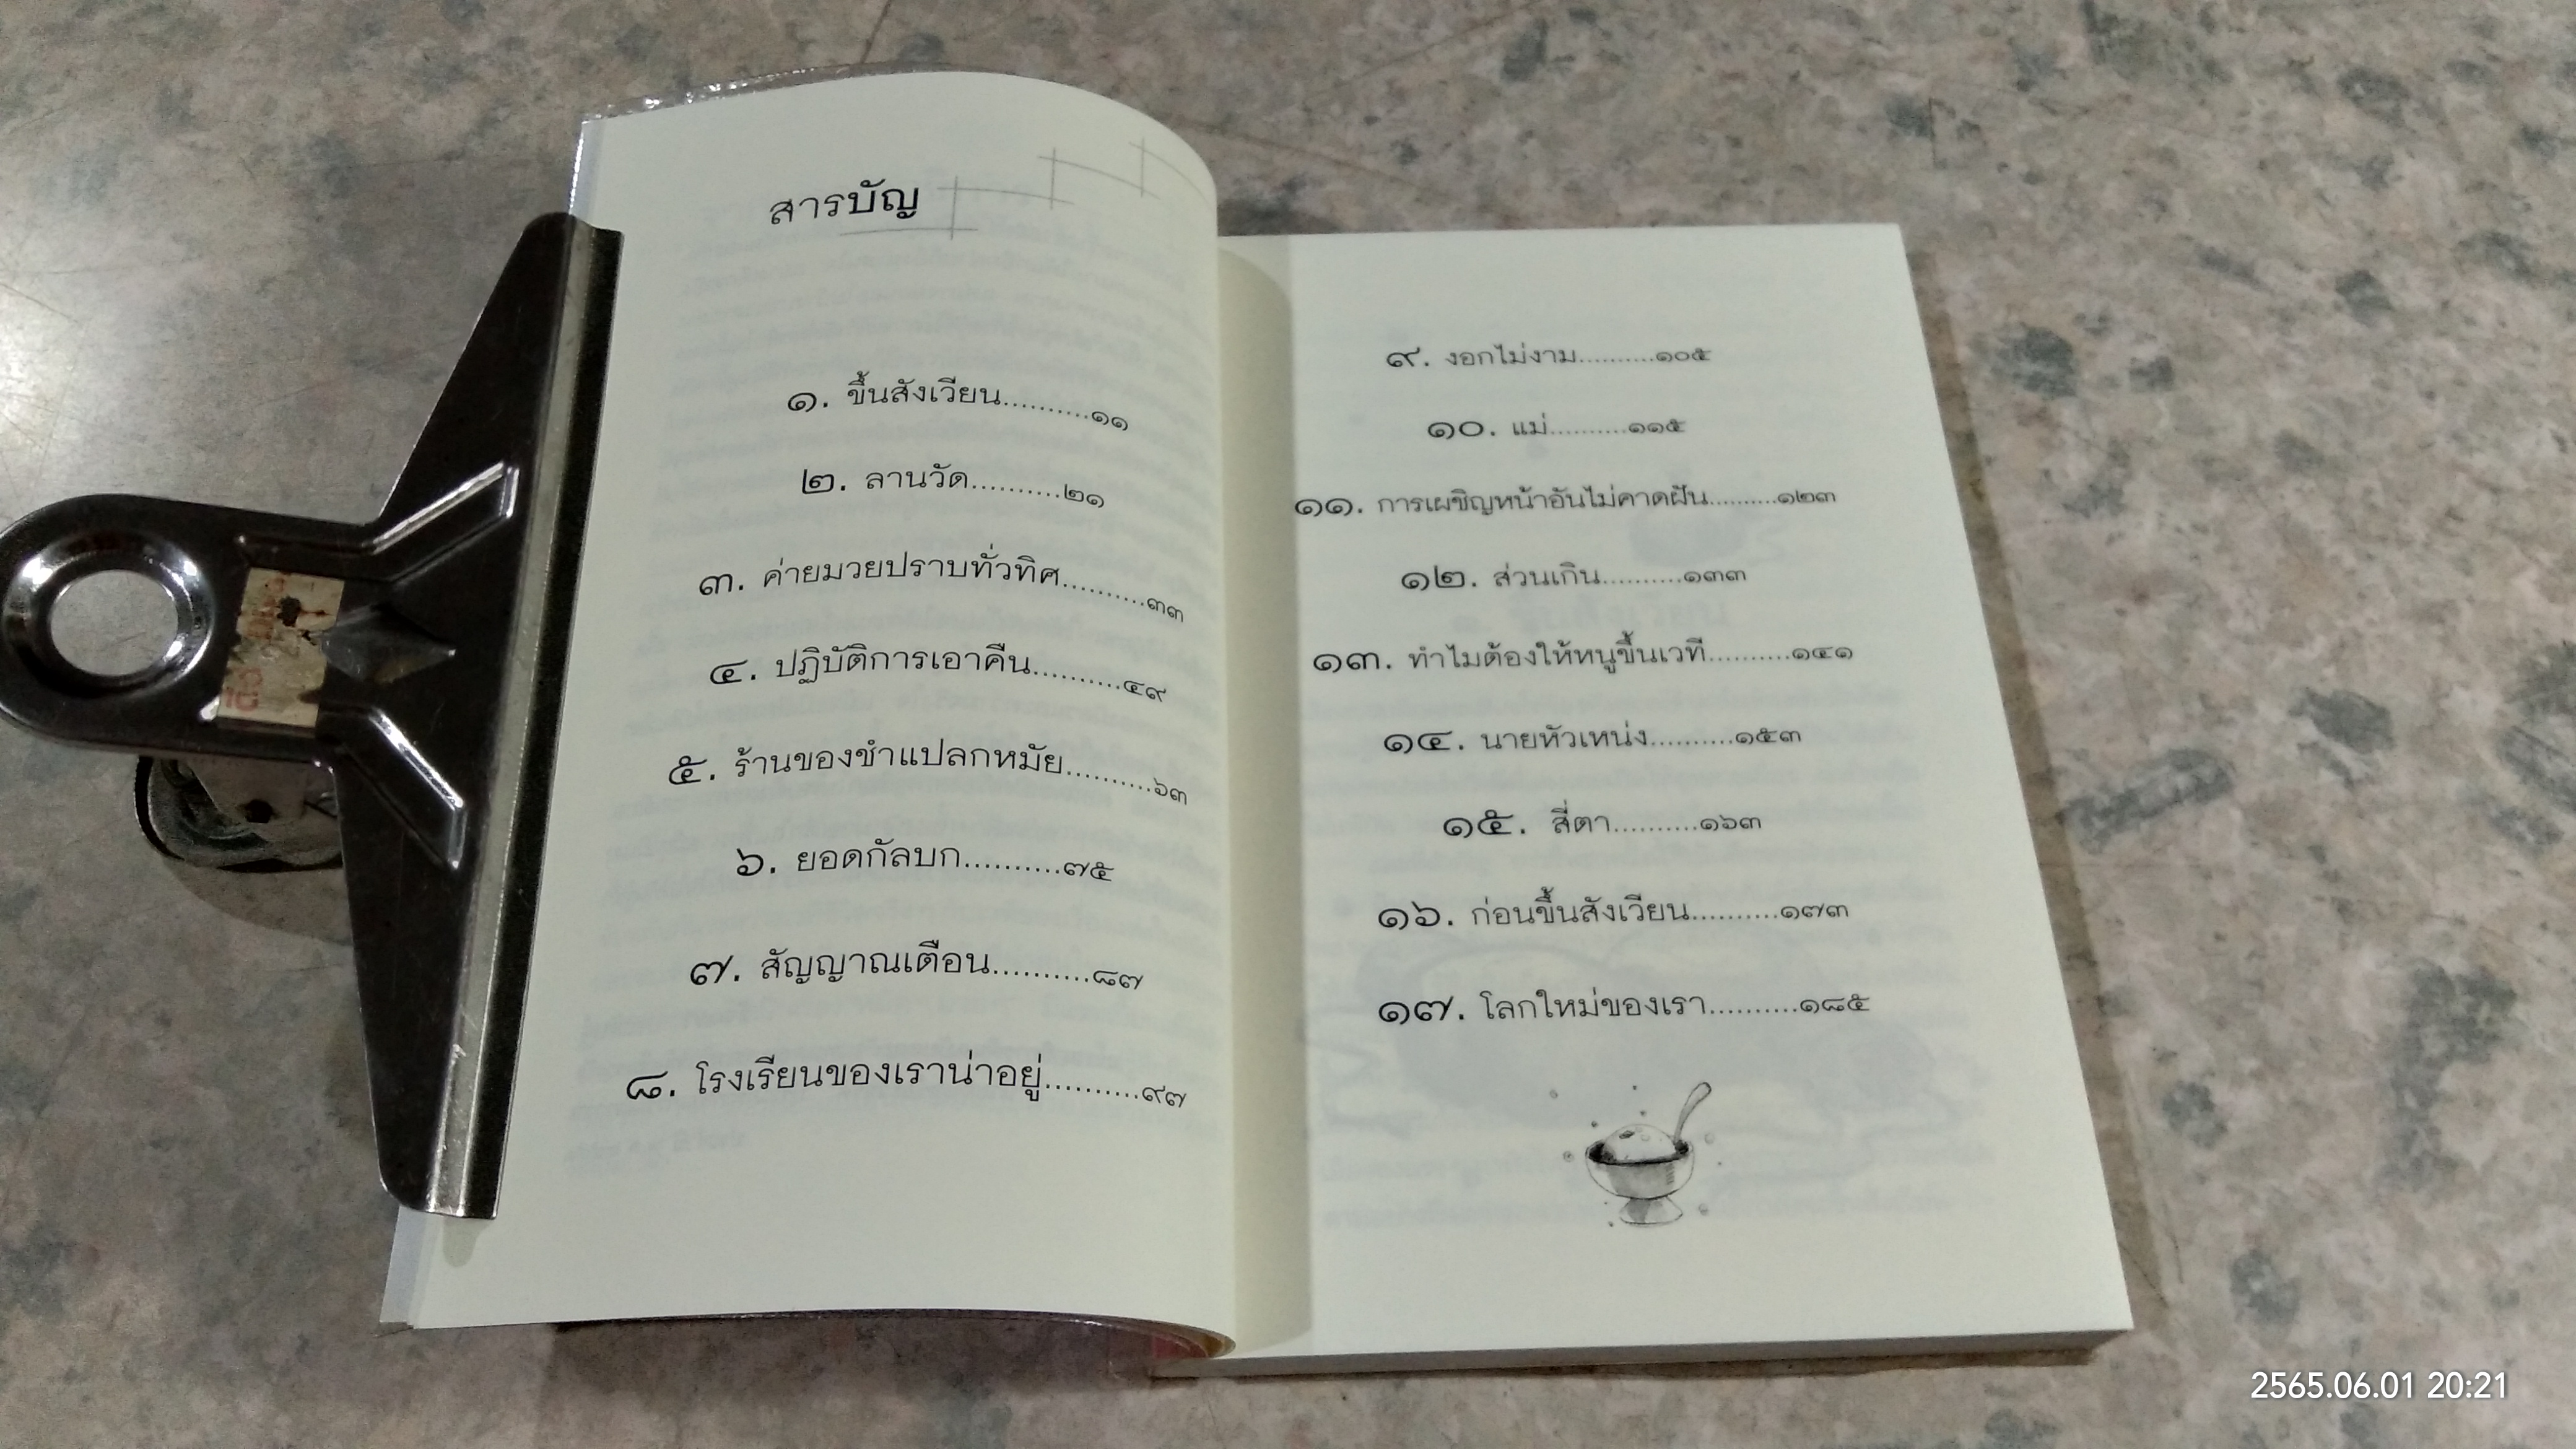 สารบัญ
๑. ขึ้นสังเวียน..........๑๑
๒. ลานวัด..........๒๑
๓. ค่ายมวยปราบทั่วทิศ..........๓๓
๔. ปฏิบัติการเอาคืน..........๔๙
๕. ร้านของชำแปลกหมัย..........๖๓
๖. ยอดกัลบก..........๗๕
๗. สัญญาณเตือน..........๘๗
๘. โรงเรียนของเราน่าอยู่..........๙๗
๙. งอกไม่งาม..........๑๐๕
๑๐. แม่..........๑๑๕
๑๑. การเผชิญหน้าอันไม่คาดฝัน..........๑๒๓
๑๒. ส่วนเกิน..........๑๓๓
๑๓. ทำไมต้องให้หนูขึ้นเวที..........๑๔๑
๑๔. นายหัวเหน่ง..........๑๕๓
๑๕. สี่ตา..........๑๖๓
๑๖. ก่อนขึ้นสังเวียน..........๑๗๓
๑๗. โลกใหม่ของเรา..........๑๘๕
2565.06.01 20:21